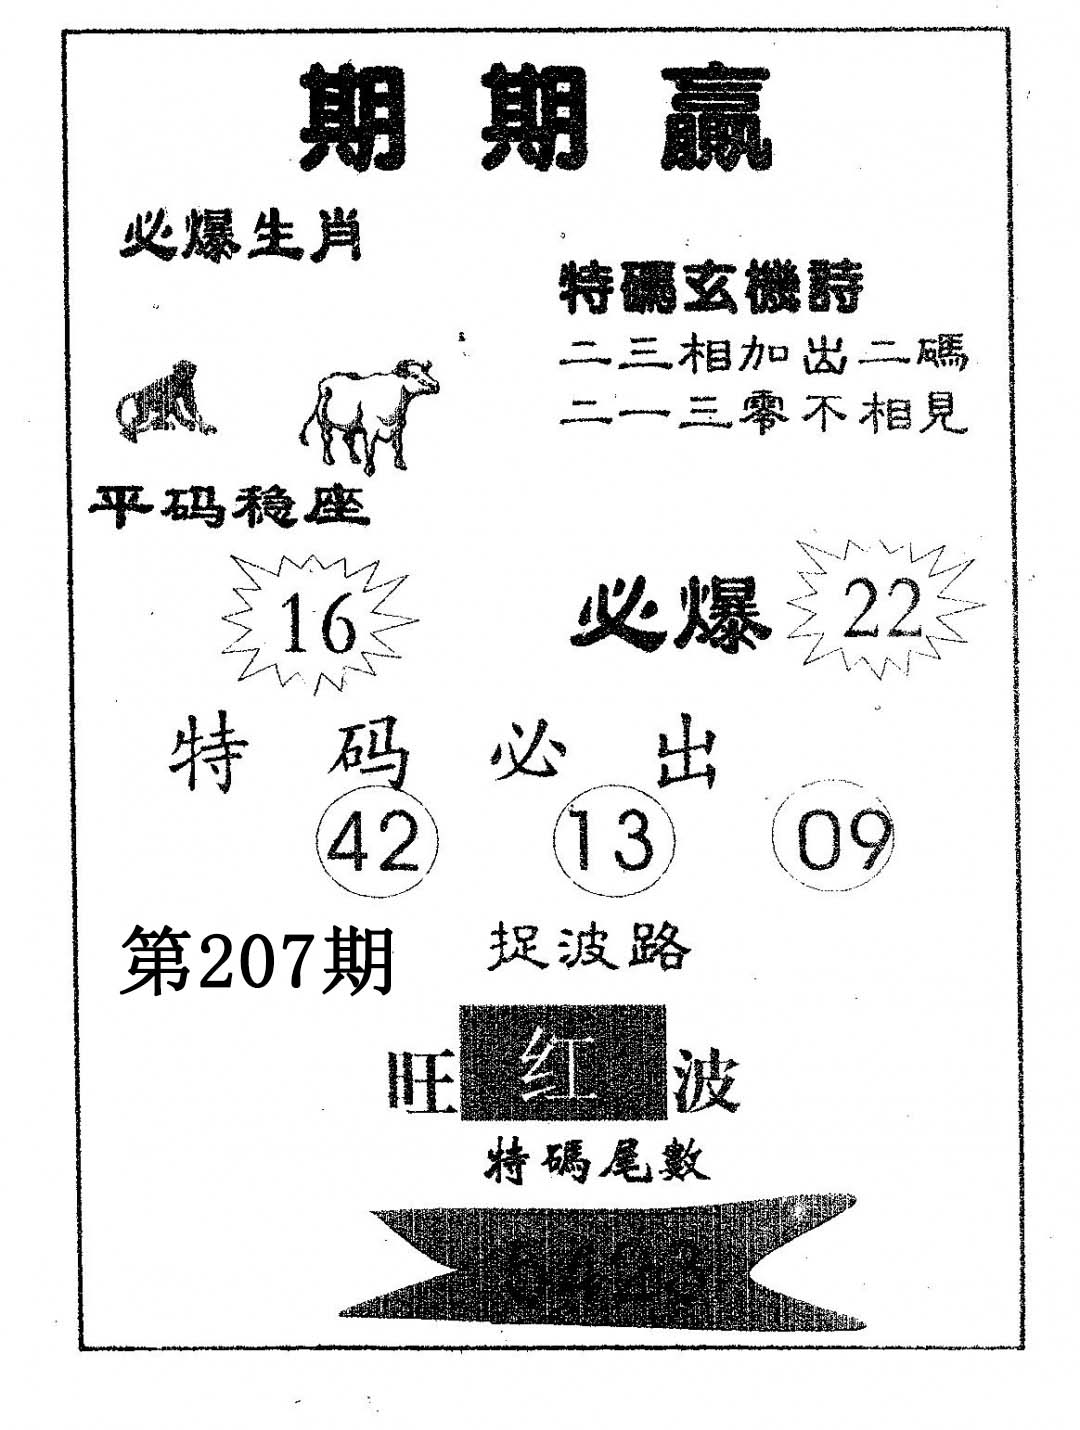 期期赢
必爆生肖
特碼玄機詩
二三相加出二碼
二一三零不相見
平码稳座
16
必爆 22
特码必出
42 13 09
第207期
捉波路
旺红波
特碼尾數